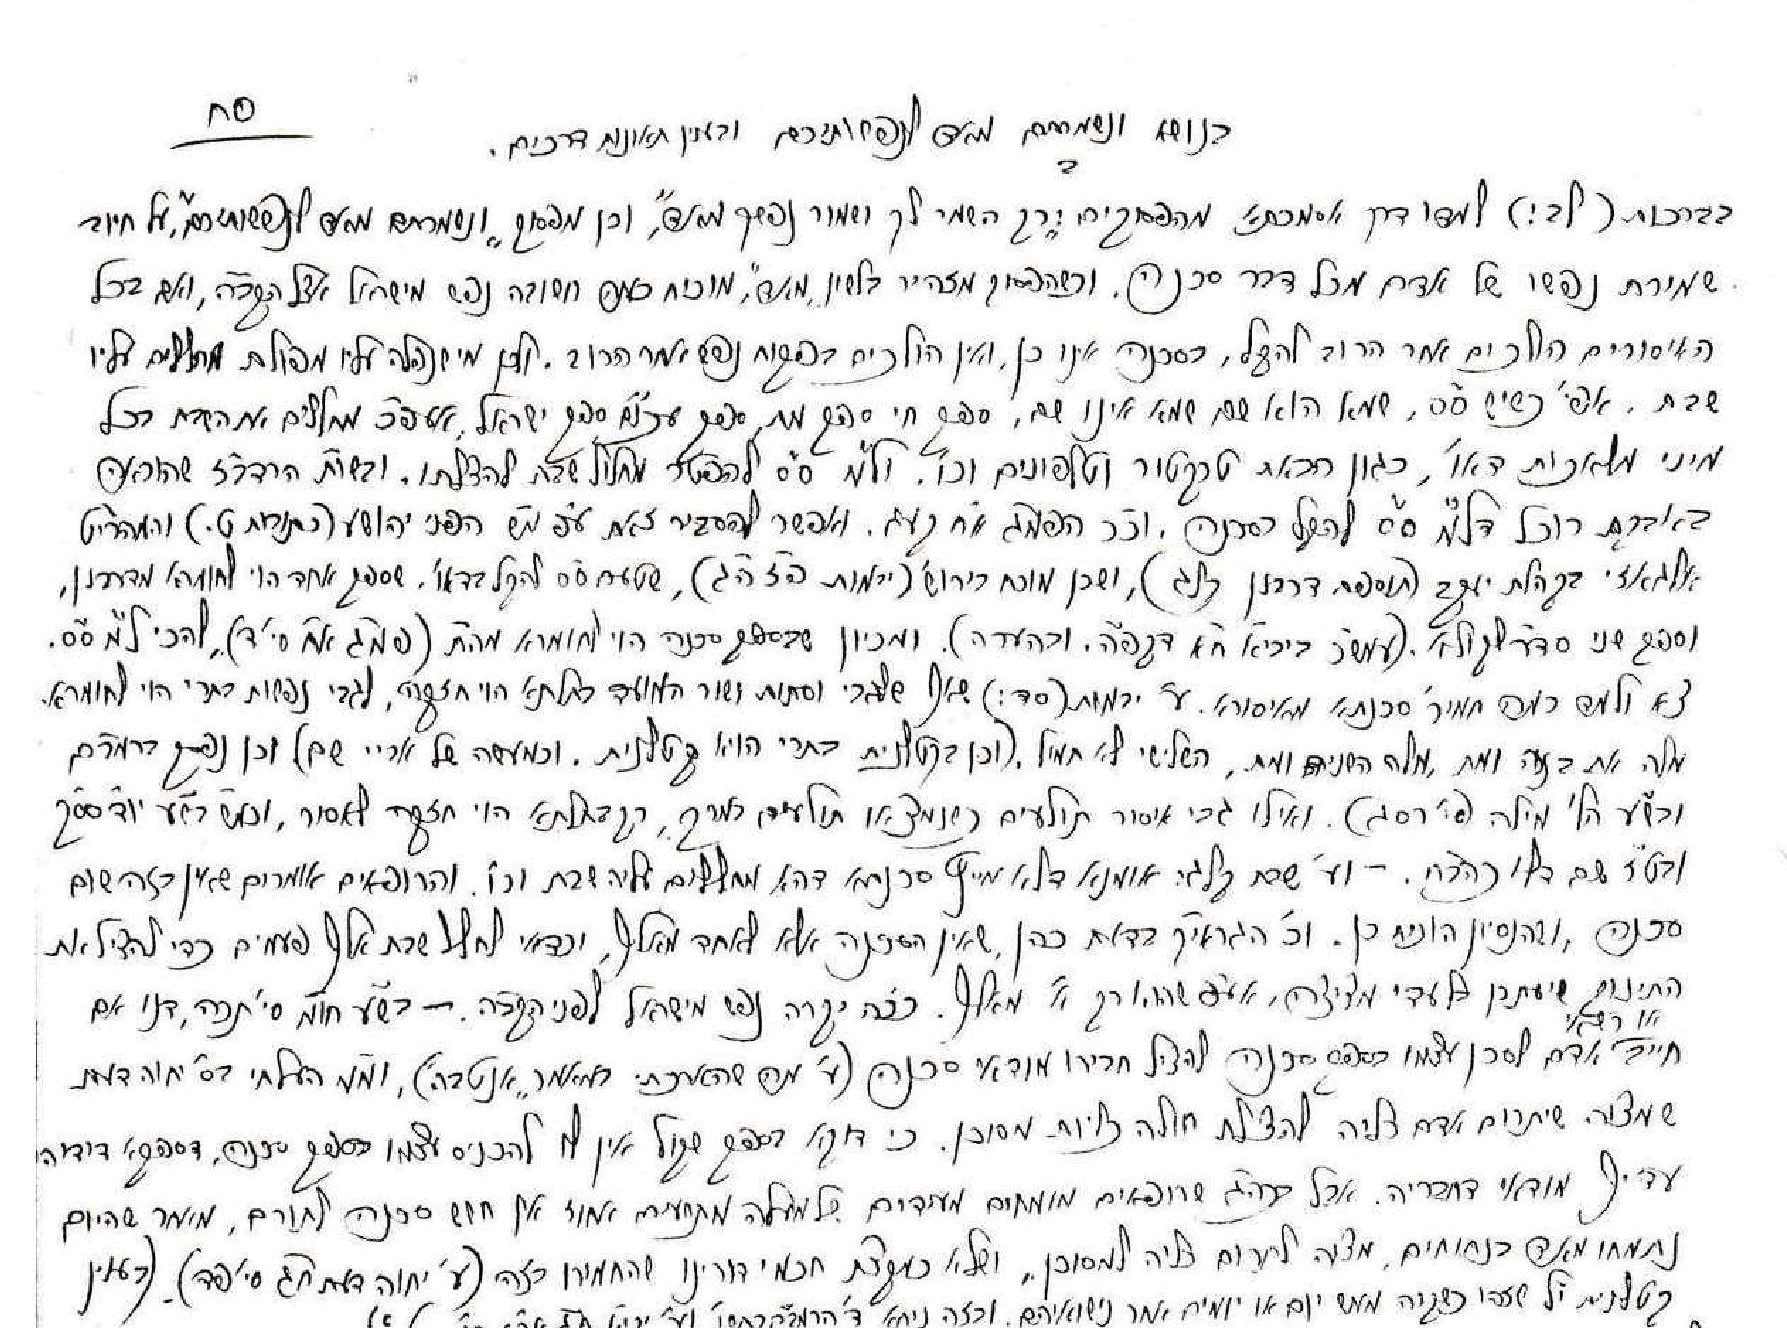 פח
בנושא ונשמרתם מאד לנפשותיכם ובענין תאונות דרכים.
בברכות (לב:) למדו דרך אסמכתא מהפסוקים "רק השמר לך ושמור נפשך מאד", וכן מפסוק "ונשמרתם מאד לנפשותיכם", על חיוב
שמירת נפשו של אדם מכל דבר סכנה. וכשהפסוק מזהיר בלשון "מאד", מוכח כמה חשובה נפש מישראל אצל הקב"ה, ואם בכל
האיסורים הולכים אחר הרוב להקל, בסכנה אינו כן, ואין הולכים בפקוח נפש אחר הרוב. ולכן מי שנפלה עליו מפולת מחללים עליו
שבת. אפי' כשיש ס"ס, שמא הוא שם שמא אינו שם, ספק חי ספק מת, ספק עכו"ם ספק ישראל, אעפ"כ מחללים את השבת בכל
מיני מלאכות דאו', כגון הבאת טרקטור וטלפונים וכו'. ול"מ ס"ס להפטר מחלול שבת להצלתו. ובשו"ת הרדב"ז שהובאה
באבקת רוכל דל"מ ס"ס להקל בסכנה. וכ"כ הפמ"ג א"ח קעג. ואפשר להסביר זאת עפ"מ"ש הפני יהושע (כתובות ט.) והמהרי"ט
אלגאזי בקהלת יעקב (תוספת דרבנן קלג), ושכן מוכח בירוש' (יבמות פ"ז ה"ג), שטעם ס"ס להקל בדאו'. שספק אחד הוי לחומרא מדרבנן,
וספק שני סד"ר לקולא. (עמש"כ ביבי"א ח"א דקפ"ה. ובהערה). ומכיון שבספק סכנה הוי לחומרא מה"ת (פמ"ג א"ח סי' ד), להכי ל"מ ס"ס.
צא ולמד כמה חמיר' סכנתא מאיסורא. ע' יבמות (סד:) שאף שלגבי וסתות ושור המועד בתלתא הוי חזקה, לגבי נפשות בתרי הוי לחומרא.
מלה את בנה ומת, מלה השני ומת, השלישי לא תמול. (וכן בקטלנית בתרי הויא קטלנית. וכמעשה של אביי שם) וכן נפסק ברמב"ם
ובש"ע הל' מילה (סי' רסג). ואילו גבי איסור תולעים כשנמצאו תולעים במרק, רק בתלתא הוי חזקה לאסור, וכמ"ש בש"ע יו"ד
ובט"ז שם. – וע' שבת קלג: אומנא דלא מייץ סכנתא דהא מחללים עליה שבת וכו'. והרופאים אומרים שאין בזה שום
סכנה, ושהנסיון הוכיח כן. וכ' הגראי"ק בדעת כהן, שאין הסכנה אלא לאחד מאלף, וכדאי לחלל שבת אלף פעמים כדי להציל את
התינוק בלעדי מציצה, אע"פ שהוא רק א' מאלף. כ"כ יקרה נפש מישראל לפני הקב"ה. – בש"ע חו"מ סי' תכה, דנו אם
או רשאי
חייב אדם לסכן עצמו בספק סכנה להציל חבירו מודאי סכנה (ע' מה שהארכתי במאמר "אנטבה"), ומה העלתי בס' יחוה דעת
שמצוה שיתרום אדם כליה להצילת חולה כליות מסוכן. כי דוקא בספק שקול אין לו להכניס עצמו בספק סכנה, דספקא דידיה
עדיף מודאי דחבריה. אבל בנ"ד שרופאים מומחים מעידים שלמעלה אחוז אין חשש סכנה לתורם, מאחר שהיום
נתמחו מאד בנתוחים, מצוה לתרום כליה למסוכן, ושלא כמקצת חכמי דורינו שהחמירו בזה (ע' יחוה דעת ח"ג סי' פד). (בענין
קטלנית י"ל יום או יומים אחר נישואיהם. ובזה ניחא